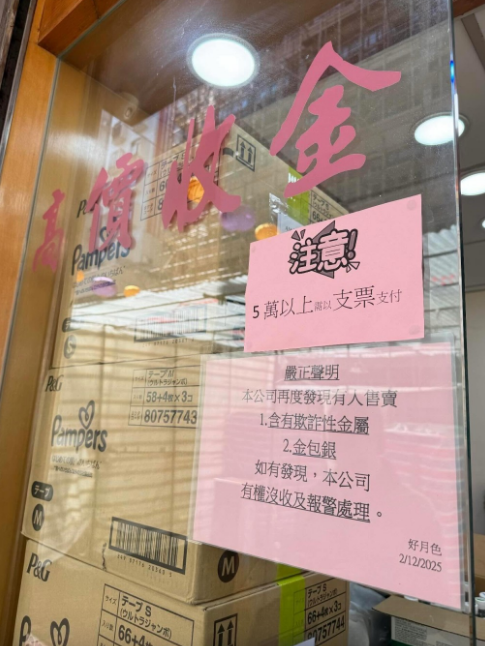 高價收金
注意!
5萬以上需以支票支付
嚴正聲明
本公司再度發現有人售賣
1.含有欺詐性金屬
2.金包銀
如有發現，本公司
有權沒收及報警處理。
好月色
2/12/2025
Pampers
テープS
(ウルトラジャンボ)
58+4枚×3コ
80757743
P&G
Pampers
テープ
M
M
P&G
テープS
(ウルトラジャンボ)
66+4
66+4枚×3
80757744